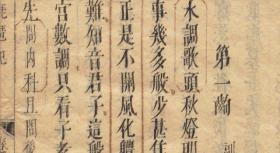 第一齣
水調歌頭秋燈明
事幾多般少甚佳
正是不關風化體
難知音君子這般
宮數調只看子孝
問內科且問後